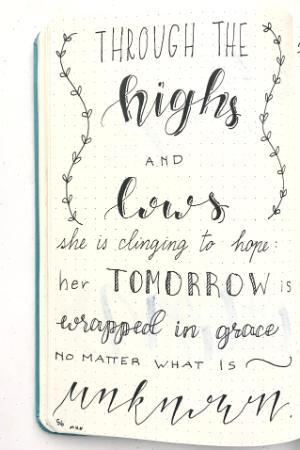 THROUGH THE
highs
AND
lows
she is clinging to hope:
her TOMORROW is
wrapped in grace
NO MATTER WHAT IS
unknown.
56